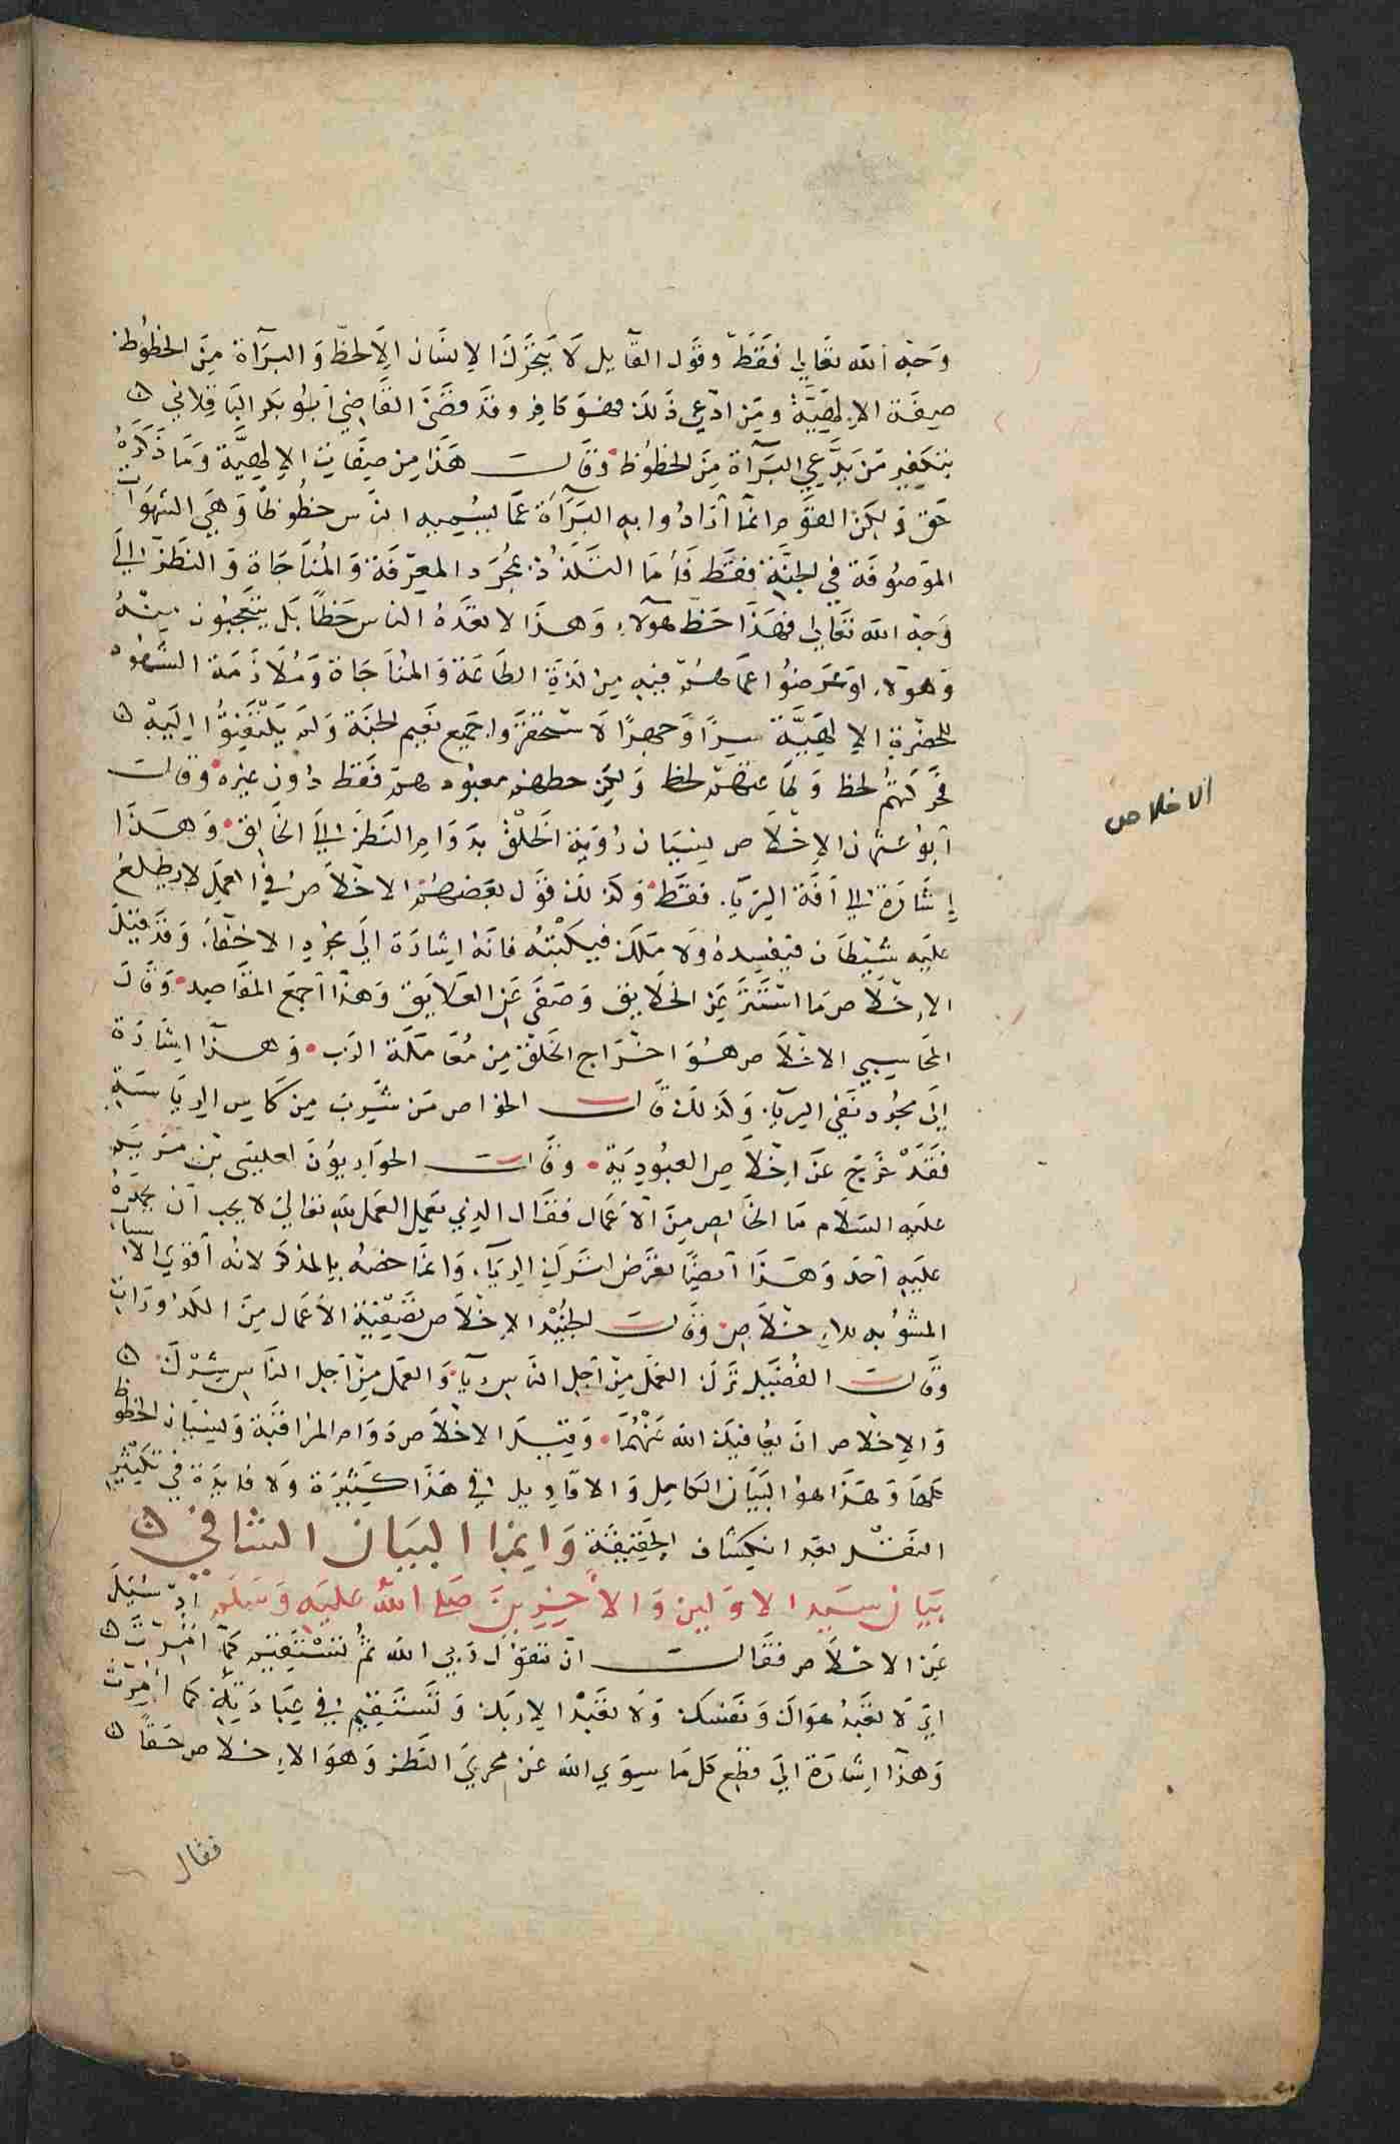 وَجْه الله تعَالى فقَطّ وقَول القآيل لَا يتحَرّكُ الإنسَان إلّا لحظّ وَالبَرآة مِنَ الحظُوظ
صِفَة الإلهيّة ومَن ادّعى ذَلك فهوَ كافِر وقد قضَى القَاضِي أبُو بَكر البَاقِلاني
بتكفِير مَن يدّعي البَرآة مِنَ الحظُوظ وقَال هَذا مِن صِفَات الإلهيّة وَمَا ذَكرَهُ
حَق وَلكِن القوم انمّا أرَادُوا به البَرَآة عمّا يسُمّيه النّاس حظُوظاً وَهِيَ الشَهَوات
الموصُوفَة في الجنَّة فقَط فَأمَا التلَذُذ بمجُرّد المعرّفَة وَالمُنَاجَاة وَالنَظر إلَى
وَجْه الله تعَالى فهَذَا حَظّ هوُلاءِ وَهذَا لا يعَدّهُ الناس حَظاً بَل يتعَجّبُون مِنْهُ
وَهوُلاءِ لو عُرضوُا عمّا هُم فيهِ مِن لذَةِ الطَاعَة وَالمنَاجَاة وَمُلَازَمَة الشهُود
للحَضْرة الإلهيَّة سِرًا وَجهرًا لَاستحقَرُوا جَميع نعَيم الجنَة وَلم يَلتَفتُوا إليَه
فحرَكتهُم لحظ وَطَاعتهُم لحظ وَلكِن حظهم معبُودهم فَقط دُون غيره وقال
أبوُ عثمان الإخْلَاص نِسيَان رُؤيَة الخَلْق بدَوَامِ النَظَر إلَى الخَالِق وَهَذَا
إشَارَة إلى آفَة الرِيَا فقَط وَكذلك قوَل بعَضهُم الاخْلَاص في العمَل لا يطّلعُ
عليَه شيْطَان فيفسِدهُ وَلا مَلَك فيَكْتبُه فانّهُ إشارَة إلَى مجُرد الاخفَآء وَقد قيْل
الإخْلَاص مَا استَتَر عَن الخَلَايق وَصَفَى عَنِ العَلايَق وَهذَا أجمَع المقَاصِد وَقَالَ
المحَاسِبي الاخْلَاص هُوَ اخْرَاج الخَلْق مِن مُعَامَلَة الرَب وَهذَا إشَارَة
إلَى مجُرد نَفي الرِيآ وَلذلك قَال الخوَاص مَن شَرِبَ مِن كَاسِ الرِيَاسَةِ
فقَدْ خَرَج عَن إخْلَاصِ العبُودِيَة وقَال الحَوَاريوُن لعيسَى بن مَريَم
عليَه السَلَام مَا الخَالِص مِنَ الأعمَال فقَال الذِي يعَملُ العَمل للهِ تعَالى لا يحب أن يحمَدهُ
عليَهِ أحَد وَهَذَا أيضًا تعَرّض لترك الرِيَآء وَانمَا خصّهُ بالذكر لأنهُ أقوَى الأسباب
المشوُبه للإخْلَاص وقَال الجنُيْد الإخْلَاص تصَفِيَة الأعْمَال مِنَ الكدُورَات
وقَال الفُضَيْل تَركَ العمَل مِنْ أجَل الناس ريآء وَالعمَل مِن أجَل النَاسِ شِرْك
وَالإخْلاص ان يعُافيَك الله عَنْهُمَا وَقيْل الاخْلَاص دَوَام المرُاقبَة وَنِسيَان الحظُوظ
كلهَا وَهَذَا هوَا البَيَان الكَامِل وَالاقَاويل في هَذَا كَثيرَة وَلا فايدَة في تَكْثيرِ
النقَل بعَد انكِشاف الحقِيقَة وَانمَا البيَان الشافي
بيَان سَيد الاوَلين وَالآخِرينَ صَلى اللهُ عليَه وَسَلم إذ سُئِلَ
عَن الاخْلَاص فقَال ان تقوُل ربي الله ثمُ تسْتَقيم كمآ امُرتَ
اي لَا تعبُد هوَاك وَنفَسك وَلا تعَبُد إلا ربَك وَتسَتَقيم في عبَادَته كما أُمِرتَ
وَهذَا إشَارَة إلى قطع كل مَا سِوَى الله عَن مجرى النَظر وَهوَ الإخلاص حَقًا
فقال
الاخلاص